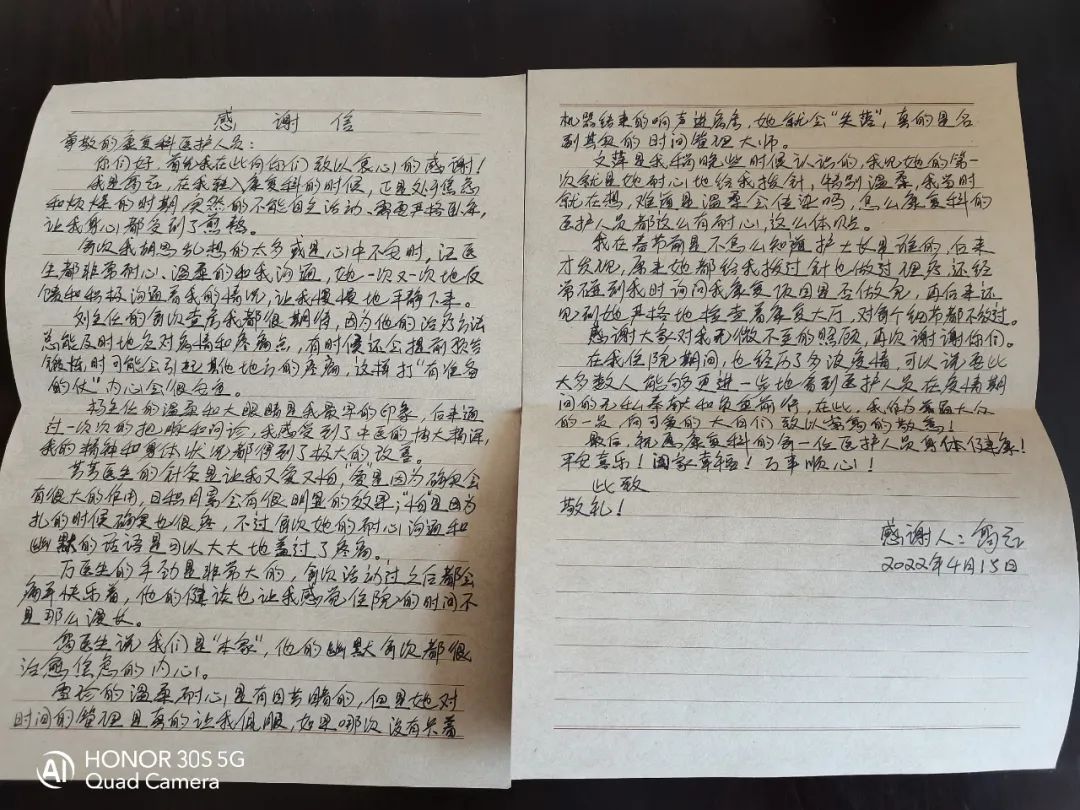 感谢信
尊敬的康复科医护人员：
你们好，首先我在此向你们致以衷心的感谢！
我是雷云，在我转入康复科的时候，正是处于焦急
和烦燥的时期，突然的不能自主活动、需要严格卧床，
让我身心都受到了煎熬。
每次我胡思乱想的太多或是心中不安时，江医
生都非常耐心、温柔的和我沟通，她一次又一次地反
馈和积极沟通着我的情况，让我慢慢地平静下来。
刘主任的每次查房我都很期待，因为他的治疗方法
总能及时地应对病情和疼痛点，有时候还会提前预告
锻炼时可能会引起其他地方的疼痛，这样打“有准备
的仗”内心会很安定。
杨主任的温柔和大眼睛是我最深的印象，后来通
过一次次的把脉和问诊，我感受到了中医的博大精深，
我的精神和身体状况都得到了极大的改善。
芳芳医生的针灸是让我又爱又怕，“爱”是因为确实会
有很大的作用，日积月累会有很明显的效果；“怕”是因为
扎的时候确实也很疼，不过每次她的耐心沟通和
幽默的话语是可以大大地盖过了疼痛。
万医生的手劲是非常大的，每次活动过之后都会
痛并快乐着，他的健谈也让我感觉住院的时间不
是那么漫长。
雷医生说我们是“本家”，他的幽默每次都很
治愈焦虑的内心。
雪珍的温柔耐心是有目共睹的，但是她对
时间的管理是真的让我佩服，如果哪次没有东着
机器结束的响声进病房，她就会“失落”，真的是名
副其实的时间管理大师。
文萍是我稍晚些时候认识的，我见她的第一
次就是她耐心地给我拔针，特别温柔，我当时
就在想，难道是温柔会传染吗，怎么康复科的
医护人员都这么有耐心，这么体贴。
我在春节前是不怎么知道护士长是谁的，后来
才发现，原来她都给我拔过针也做过理疗，还经
常碰到我时询问我康复项目是否做完，再后来还
见到她严格地检查着康复大厅，对每个细节都不放过。
感谢大家对我无微不至的照顾，再次谢谢你们。
在我住院期间，也经历了多波疫情，可以说要比
太多数人能够更进一步地看到医护人员在疫情期
间的无私奉献和负重前行，在此，我作为普通大众
的一员向可爱的大白们致以崇高的敬意！
最后，祝愿康复科的每一位医护人员身体健康！
平安喜乐！阖家幸福！万事顺心！
此致
敬礼！
感谢人：雷云
2022年4月15日
HONOR 30S 5G
AI Quad Camera